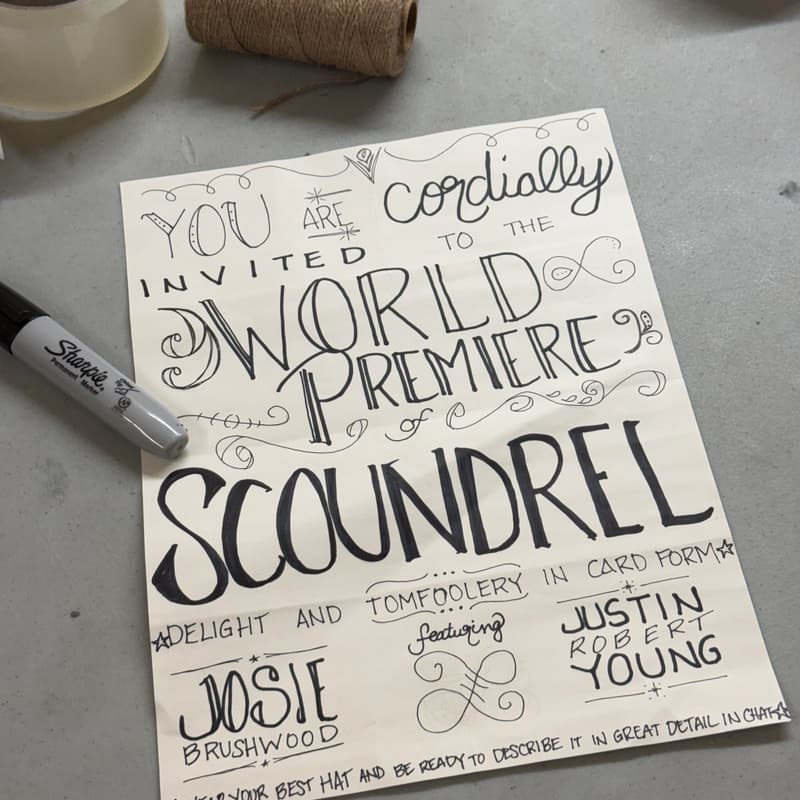 YOU ARE cordially
INVITED TO THE
WORLD
PREMIERE
of
SCOUNDREL
DELIGHT AND TOMFOOLERY IN CARD FORM
featuring
JOSIE
BRUSHWOOD
JUSTIN
ROBERT
YOUNG
YOUR BEST HAT AND BE READY TO DESCRIBE IT IN GREAT DETAIL IN CHAT
Sharpie
Permanent Marker